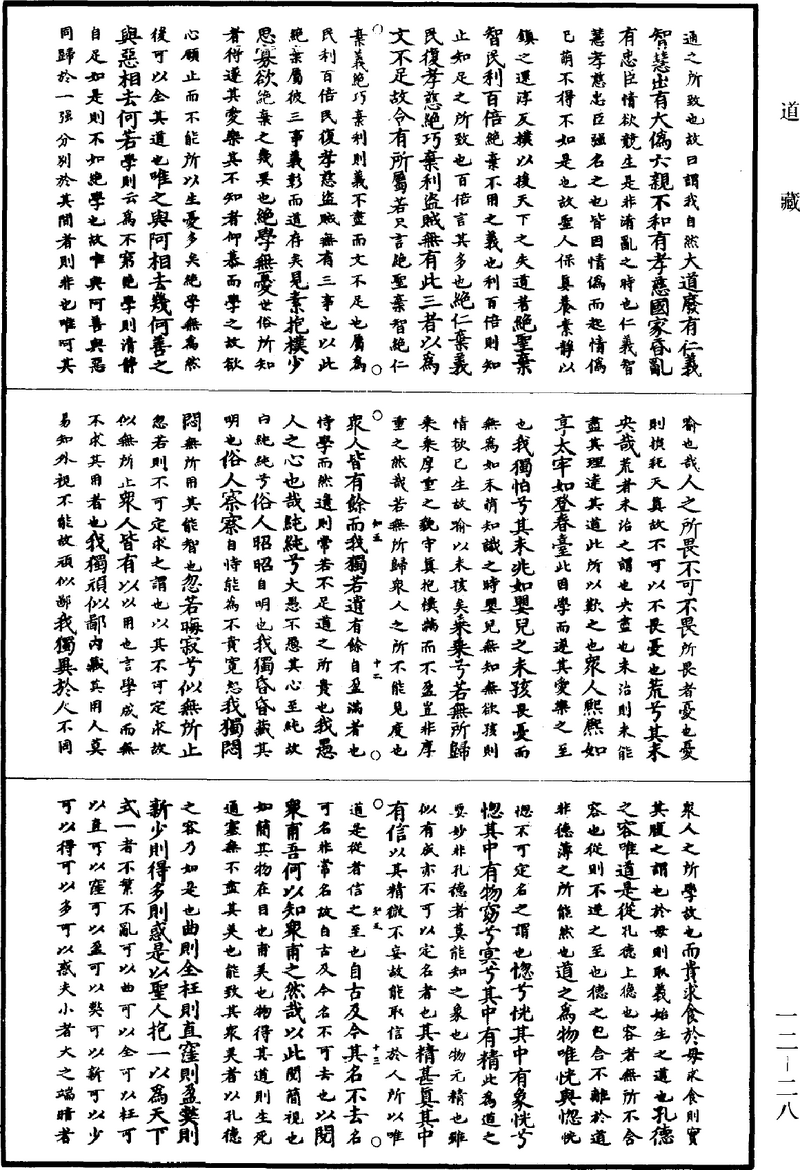 道藏
通之所致也故曰謂我自然大道廢有仁義
智慧出有大偽六親不和有孝慈國家昏亂
有忠臣情欲競生是非淆亂之時也仁義智
慧孝慈忠臣強名之也皆因情偽而起情偽
已萌不得不如是也故聖人保真養素靜以
鎮之還淳反樸以後天下之失道者絕聖棄
智民利百倍絕棄不用之義也利百倍則知
止知足之所致也百倍言其多也絕仁棄義
民復孝慈絕巧棄利盜賊無有此三者以為
文不足故令有所屬若只言絕聖棄智絕仁
棄義絕巧棄利則義不盡而文不足也屬為
民利百倍民復孝慈盜賊無有三事也以此
絕棄屬彼三事義彰而道存矣見素抱樸少
思寡欲絕棄之幾要也絕學無憂世俗所知
者得遂其愛樂其不知者仰慕而學之故欲
心願止而不能所以生憂多矣絕學無為然
後可以全其道也唯之與阿相去幾何善之
與惡相去何若學則云為不窮絕學則清靜
自足如是則不如絕學也故唯與阿善與惡
同歸於一強分別於其間者則非也唯阿其
喻也哉人之所畏不可不畏所畏者憂也憂
則損耗天真故不可以不畏憂也荒兮其未
央哉荒者未治之謂也央盡也未治則未能
盡其理達其道此所以歎之也眾人熙熙如
享太牢如登春臺此因學而遂其愛樂之至
也我獨怕兮其未兆如嬰兒之未孩畏憂而
無為如未萌知識之時嬰兒無知無欲孩則
情欲已生故喻以未孩矣乘乘兮若無所歸
乘乘摩重之貌守真抱樸滿而不盈豈非摩
重之然哉若無所歸眾人之所不能見度也
眾人皆有餘而我獨若遺有餘自盈滿者也
恃學而然遺則常若不足道之所貴也我愚
人之心也哉純純兮大愚不愚其心至純故
曰純純兮俗人昭昭自明也我獨昏昏藏其
明也俗人察察自恃能為不責寬恕我獨悶
悶無所用其能智也忽若晦寂兮似無所止
忽若則不可定求之謂也以其不可定求故
似無所止眾人皆有以以用也言學成而無
不求其用者也我獨頑似鄙內藏其用人莫
易知外視不能故頑似鄙我獨異於人不同
眾人之所學故也而貴求食於母求食則實
其腹之謂也於母則取義始生之道也孔德
之容唯道是從孔德上德也容者無所不含
容也從則不逆之至也德之包含不離於道
非德薄之所能然也道之為物唯恍與惚恍
惚不可定名之謂也惚兮恍其中有象恍兮
惚其中有物窈兮冥兮其中有精此為道之
要妙非孔德者莫能知之象也物元精也雖
似有成亦不可以定名者也其精甚真其中
有信以其精微不妄故能取信於人所以唯
道是從者信之至也自古及今其名不去名
可名非常名故自古及今名不可去也以閱
眾甫吾何以知眾甫之然哉以此閱簡視也
如簡其物在目也甫美也物得其道則生死
通塞無不盡其美也能致其眾美者以孔德
之容乃如是也曲則全枉則直窪則盈弊則
新少則得多則惑是以聖人抱一以為天下
式一者不繁不亂可以曲可以全可以枉可
以直可以窪可以盈可以弊可以新可以少
可以得可以多可以惑夫小者大之端晴者
一二—二八